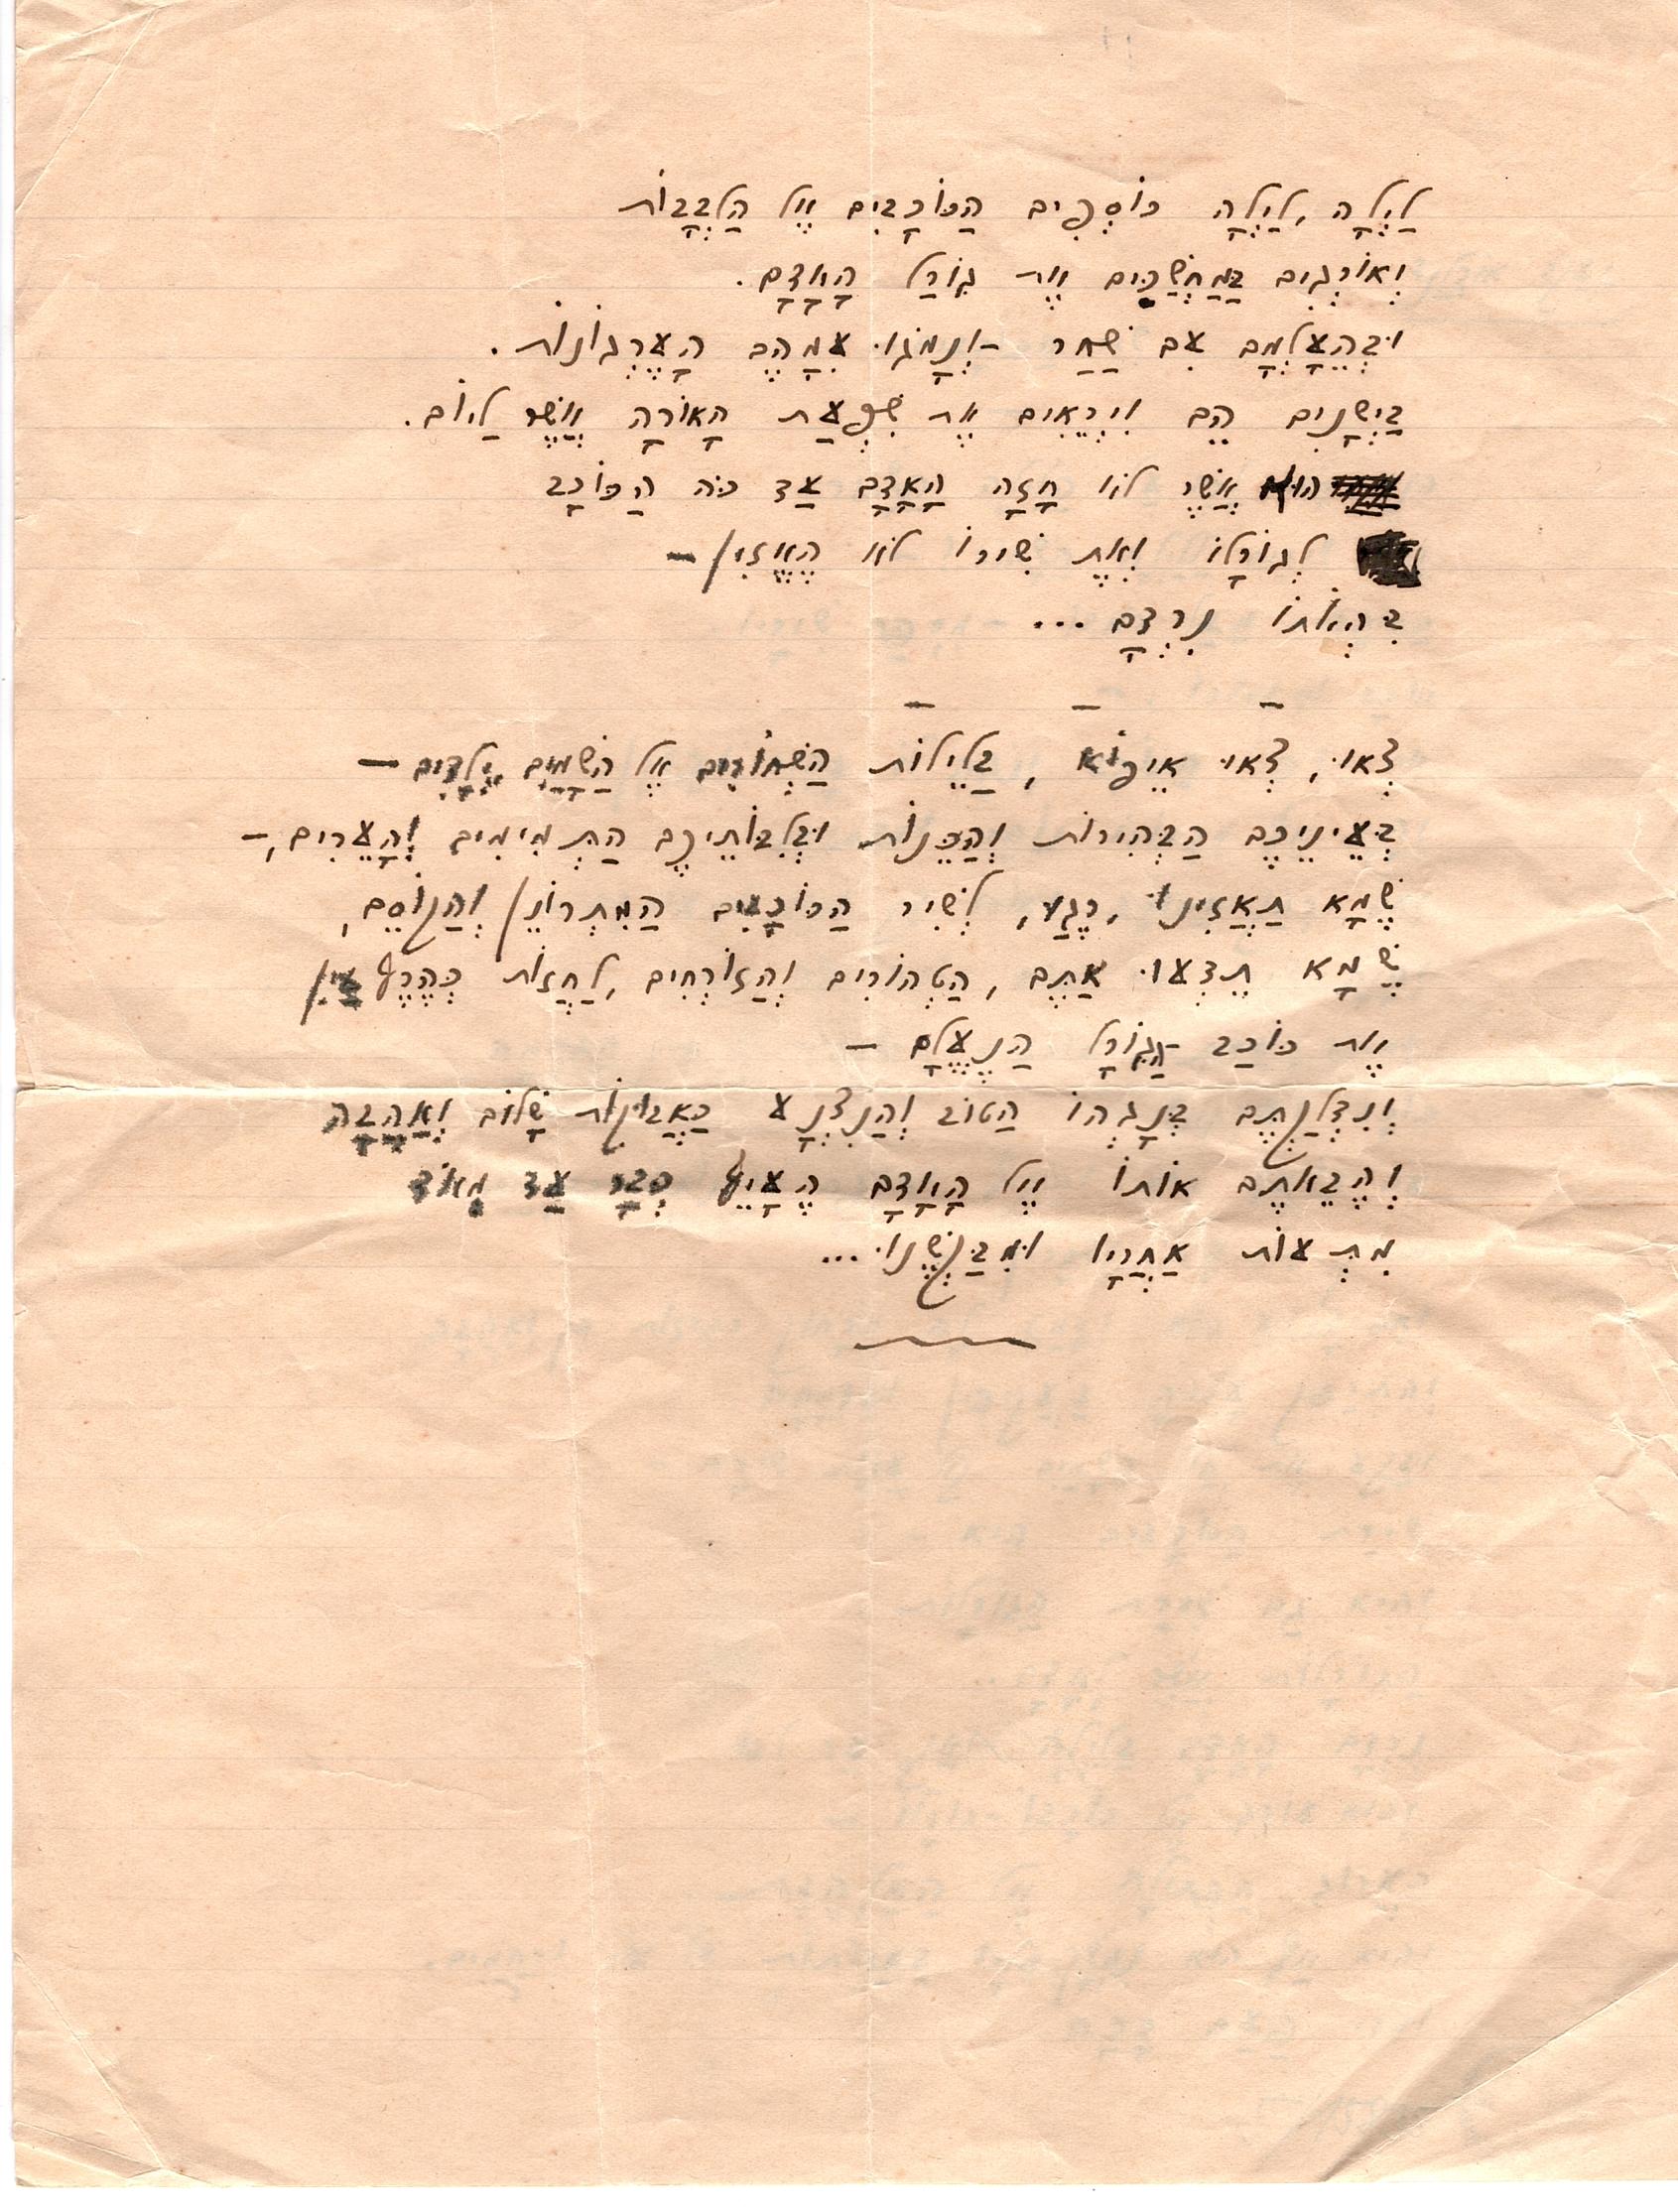 לַיְלָה, לַיְלָה כּוֹסְפִים הַכּוֹכָבִים אֶל הַלְּבָבוֹת
וְאוֹרְגִים בַּמַּחְשַׁכִּים אֶת גּוֹרַל הָאָדָם.
וּבְהֵעָלְמָם עִם שַׁחַר - וְנָמֹגוּ עִמָּהֶם הָעֶרְגּוֹנוֹת.
בַּיְשָׁנִים הֵם וִירֵאִים אֶת שִׁפְעַת הָאוֹרָה אֲשֶׁר לַיּוֹם.
הוּא אֲשֶׁר לֹא חָזָה הָאָדָם עַד כֹּה הַכּוֹכָב
לְגוֹרָלוֹ וְאֶת שִׁירוֹ לֹא הֶאֱזִין –
בִּהְיֹתוֹ נִרְדָּם ...
– – –
צְאוּ, צְאוּ אֵיפֹוא, בַּלֵּילוֹת הַשְּׁחוֹרִים אֶל הַשָּׁמַיִם יְלָדִים –
בְּעֵינֵיכֶם הַבְּהִירוֹת וְהַכֵּנוֹת וּבְלִבּוֹתֵיכֶם הַתְּמִימִים וְהָעֵרִים, –
שֶׁמָּא תַּאֲזִינוּ, רֶגַע, לְשִׁיר הַכּוֹכָבִים הַמִּתְרוֹנֵן וְהַקּוֹסֵם,
שֶׁמָּא תֵּדְעוּ אַתֶּם, הַטְּהוֹרִים וְהַזּוֹרְחִים, לַחֲזוֹת כְּהֶרֶף עַיִן
אֶת כּוֹכַב-הַגּוֹרָל הַנֶּעֱלָם –
וְנִדְלַקְתֶּם בְּנָגְהוֹ הַטּוֹב וְהַנִּצְנָע כַּאֲבוּקוֹת שָׁלוֹם וְאַהֲבָה
וְהֲבֵאתֶם אוֹתוֹ אֶל הָאָדָם הֶעָיֵף כְּבָר עַד מְאוֹד
מִתְּעוֹת אַחֲרָיו וּמִבַּקְּשֶׁנּוּ...